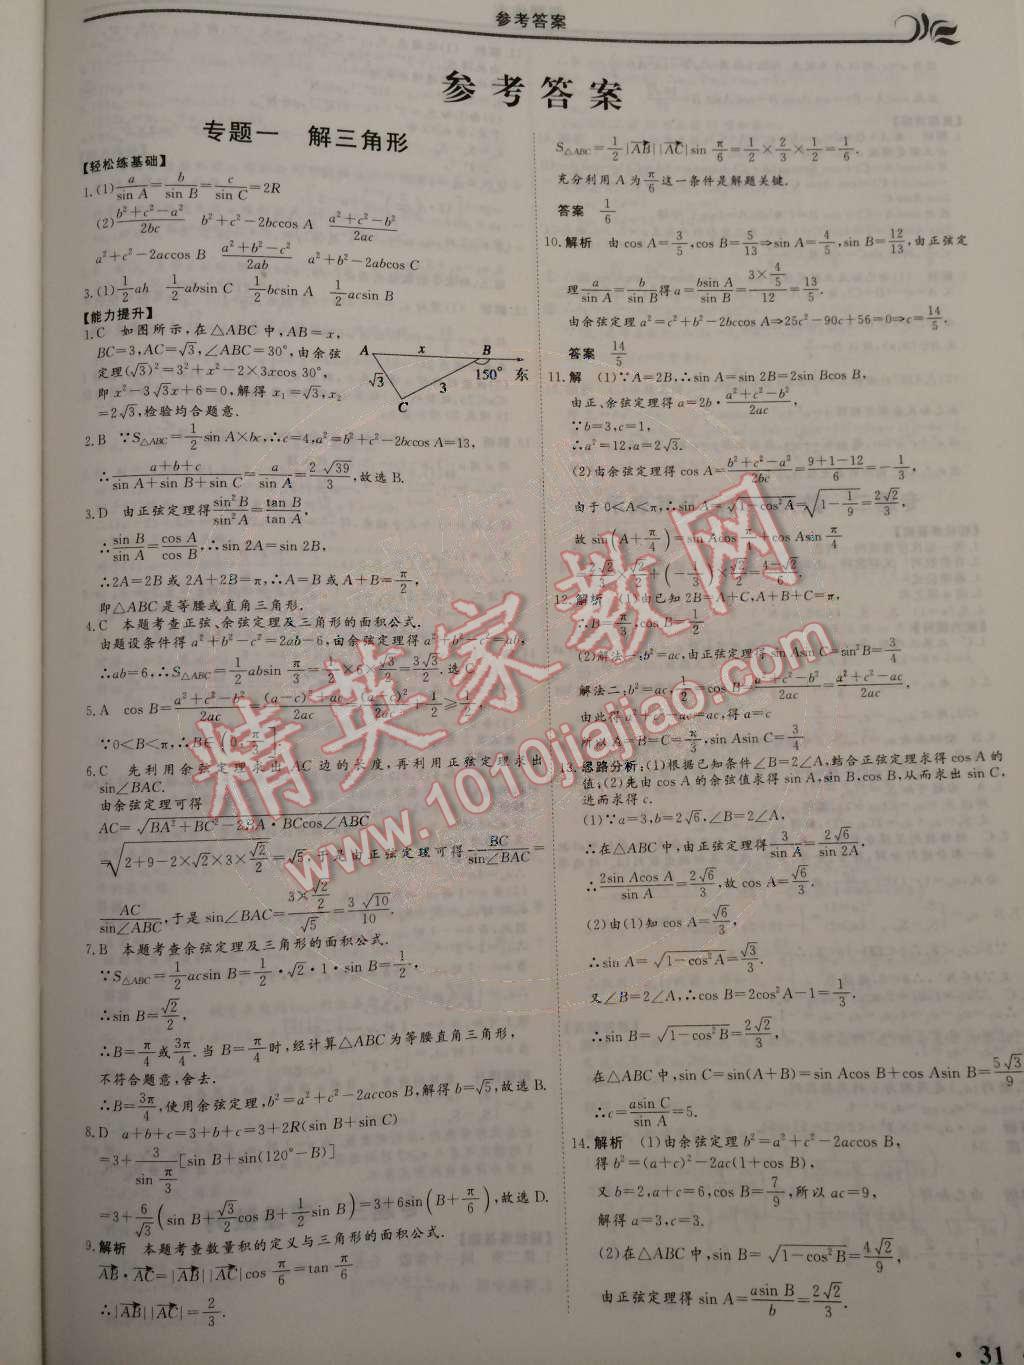 参考答案
参考答案
专题一 解三角形
【轻松练基础】
1.(1) a/sin A = b/sin B = c/sin C = 2R
(2) (b²+c²−a²)/2bc  b²+c²−2bccos A  (a²+c²−b²)/2ac
a²+c²−2accos B  (a²+b²−c²)/2ab  a²+b²−2abcos C
3.(1) 1/2 ah  1/2 absin C  1/2 bcsin A  1/2 acsin B
【能力提升】
1.C 如图所示,在△ABC中,AB=x,
BC=3,AC=√3,∠ABC=30°,由余弦
定理(√3)²=3²+x²−2×3xcos 30°,
即 x²−3√3x+6=0,解得 x₁=√3,x₂
=2√3,检验均合题意.
A x B
√3 3 150° 东
C
2.B ∵S△ABC=1/2 sin A×bc,∴c=4,a²=b²+c²−2bccos A=13,
∴(a+b+c)/(sin A+sin B+sin C)=a/sin A=2√39/3,故选B.
3.D 由正弦定理得 sin²B/sin²A=tan B/tan A,
∴sin B/sin A=cos A/cos B,∴sin 2A=sin 2B,
∴2A=2B 或 2A+2B=π,∴A=B 或 A+B=π/2,
即△ABC是等腰或直角三角形.
4.C 本题考查正弦、余弦定理及三角形的面积公式.
由题设条件得 a²+b²−c²=2ab−6,由余弦定理得 a²+b²−c²=ab,
∴ab=6,∴S△ABC=1/2 absin π/3=1/2×6×√3/2=3√3/2.选C
5.A cos B=(a²+c²−b²)/2ac=((a−c)²+ac)/2ac=(a−c)²/2ac+1/2≥1/2,
∵0<B<π,∴B∈(0,π/3].
6.C 先利用余弦定理求出AC边的长度,再利用正弦定理求出
sin∠BAC.
由余弦定理可得
AC=√(BA²+BC²−2BA·BCcos∠ABC)
=√(2+9−2×√2×3×√2/2)=√5,于是由正弦定理可得 BC/sin∠BAC=
AC/sin∠ABC,于是 sin∠BAC=(3×√2/2)/√5=3√10/10.
7.B 本题考查余弦定理及三角形的面积公式.
∵S△ABC=1/2 acsin B=1/2·√2·1·sin B=1/2,
∴sin B=√2/2,
∴B=π/4 或 3π/4.当 B=π/4 时,经计算△ABC为等腰直角三角形,
不符合题意,舍去.
∴B=3π/4,使用余弦定理,b²=a²+c²−2accos B,解得 b=√5,故选B.
8.D a+b+c=3+b+c=3+2R(sin B+sin C)
=3+3/sin π/3 [sin B+sin(120°−B)]
=3+6/√3(sin B+√3/2 cos B+1/2 sin B)=3+6sin(B+π/6),故选D.
9.解析 本题考查数量积的定义与三角形的面积公式.
AB·AC=|AB||AC|cos π/6=tan π/6
∴|AB||AC|=2/3.
S△ABC=1/2|AB||AC|sin π/6=1/2×2/3×1/2=1/6.
充分利用A为π/6这一条件是解题关键.
答案 1/6
10.解析 由 cos A=3/5,cos B=5/13⇒sin A=4/5,sin B=12/13,由正弦定
理 a/sin A=b/sin B 得 a=bsin A/sin B=(3×4/5)/12=13/5.
由余弦定理 a²=c²+b²−2bccos A⇒25c²−90c+56=0⇒c=14/5.
答案 14/5
11.解 (1)∵A=2B,∴sin A=sin 2B=2sin Bcos B,
由正、余弦定理得 a=2b·(a²+c²−b²)/2ac,
∵b=3,c=1,
∴a²=12,a=2√3.
(2)由余弦定理得 cos A=(b²+c²−a²)/2bc=(9+1−12)/6=−1/3,
由于 0<A<π,∴sin A=√(1−cos²A)=√(1−1/9)=2√2/3,
故 sin(A+π/4)=sin Acos π/4+cos Asin π/4
=2√2/3×√2/2+(−1/3)×√2/2=(4−√2)/6.
12.解析 (1)由已知 2B=A+C,A+B+C=π,
∴B=π/3,cos B=1/2
(2)解法一:b²=ac,由正弦定理得 sin Asin C=sin²B=3/4
解法二:b²=ac,1/2=cos B=(a²+c²−b²)/2ac=(a²+c²−ac)/2ac,
由此得 a²+c²−ac=ac,得 a=c
所以 A=B=C=π/3,sin Asin C=3/4
13.思路分析:(1)根据已知条件∠B=2∠A,结合正弦定理求得 cos A 的
值;(2)先由 cos A 的余弦值求得 sin A,sin B,cos B,从而求出 sin C,
进而求得 c.
(1)∵a=3,b=2√6,∠B=2∠A,
∴在△ABC中,由正弦定理得 3/sin A=2√6/sin 2A.
∴2sin Acos A/sin A=2√6/3,故 cos A=√6/3.
(2)由(1)知 cos A=√6/3,
∴sin A=√(1−cos²A)=√3/3.
又∠B=2∠A,∴cos B=2cos²A−1=1/3.
∴sin B=√(1−cos²B)=2√2/3,
在△ABC中,sin C=sin(A+B)=sin Acos B+cos Asin B=5√3/9
∴c=asin C/sin A=5.
14.解析 (1)由余弦定理 b²=a²+c²−2accos B,
得 b²=(a+c)²−2ac(1+cos B),
又 b=2,a+c=6,cos B=7/9,所以 ac=9,
解得 a=3,c=3.
(2)在△ABC中,sin B=√(1−cos²B)=4√2/9,
由正弦定理得 sin A=asin B/b=2√2/3.
精英家教网
www.1010jiajiao.com
·31·